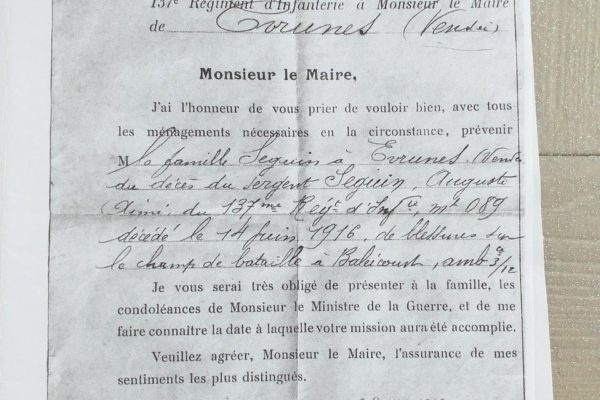 137e Régiment d'Infanterie à Monsieur le Maire
de Evrunes (Vendée)
Monsieur le Maire,
J'ai l'honneur de vous prier de vouloir bien, avec tous
les ménagements nécessaires en la circonstance, prévenir
M la famille Seguin à Evrunes, (Vendée
du décès du sergent Seguin, Auguste
Aimé, du 137me Reg.t d'Inf.ie, mle 089
décédé le 14 juin 1916, de blessures sur
le champ de bataille à Baleicourt, amb.ce 3/12
Je vous serai très obligé de présenter à la famille, les
condoléances de Monsieur le Ministre de la Guerre, et de me
faire connaître la date à laquelle votre mission aura été accomplie.
Veuillez agréer, Monsieur le Maire, l'assurance de mes
sentiments les plus distingués.